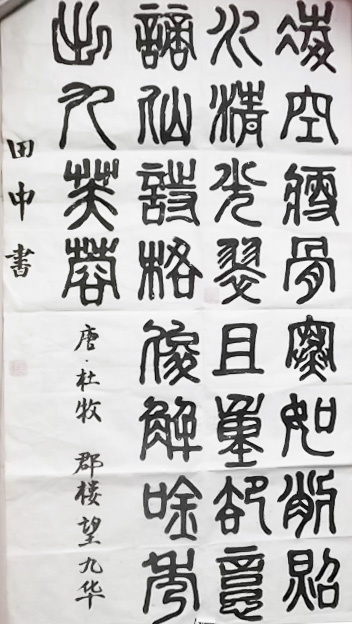 凌空瘦骨寒如削照
水清光翠且重却憶
謫仙詩格俊解吟秀
出九芙蓉
唐·杜牧 郡楼望九华
田中書